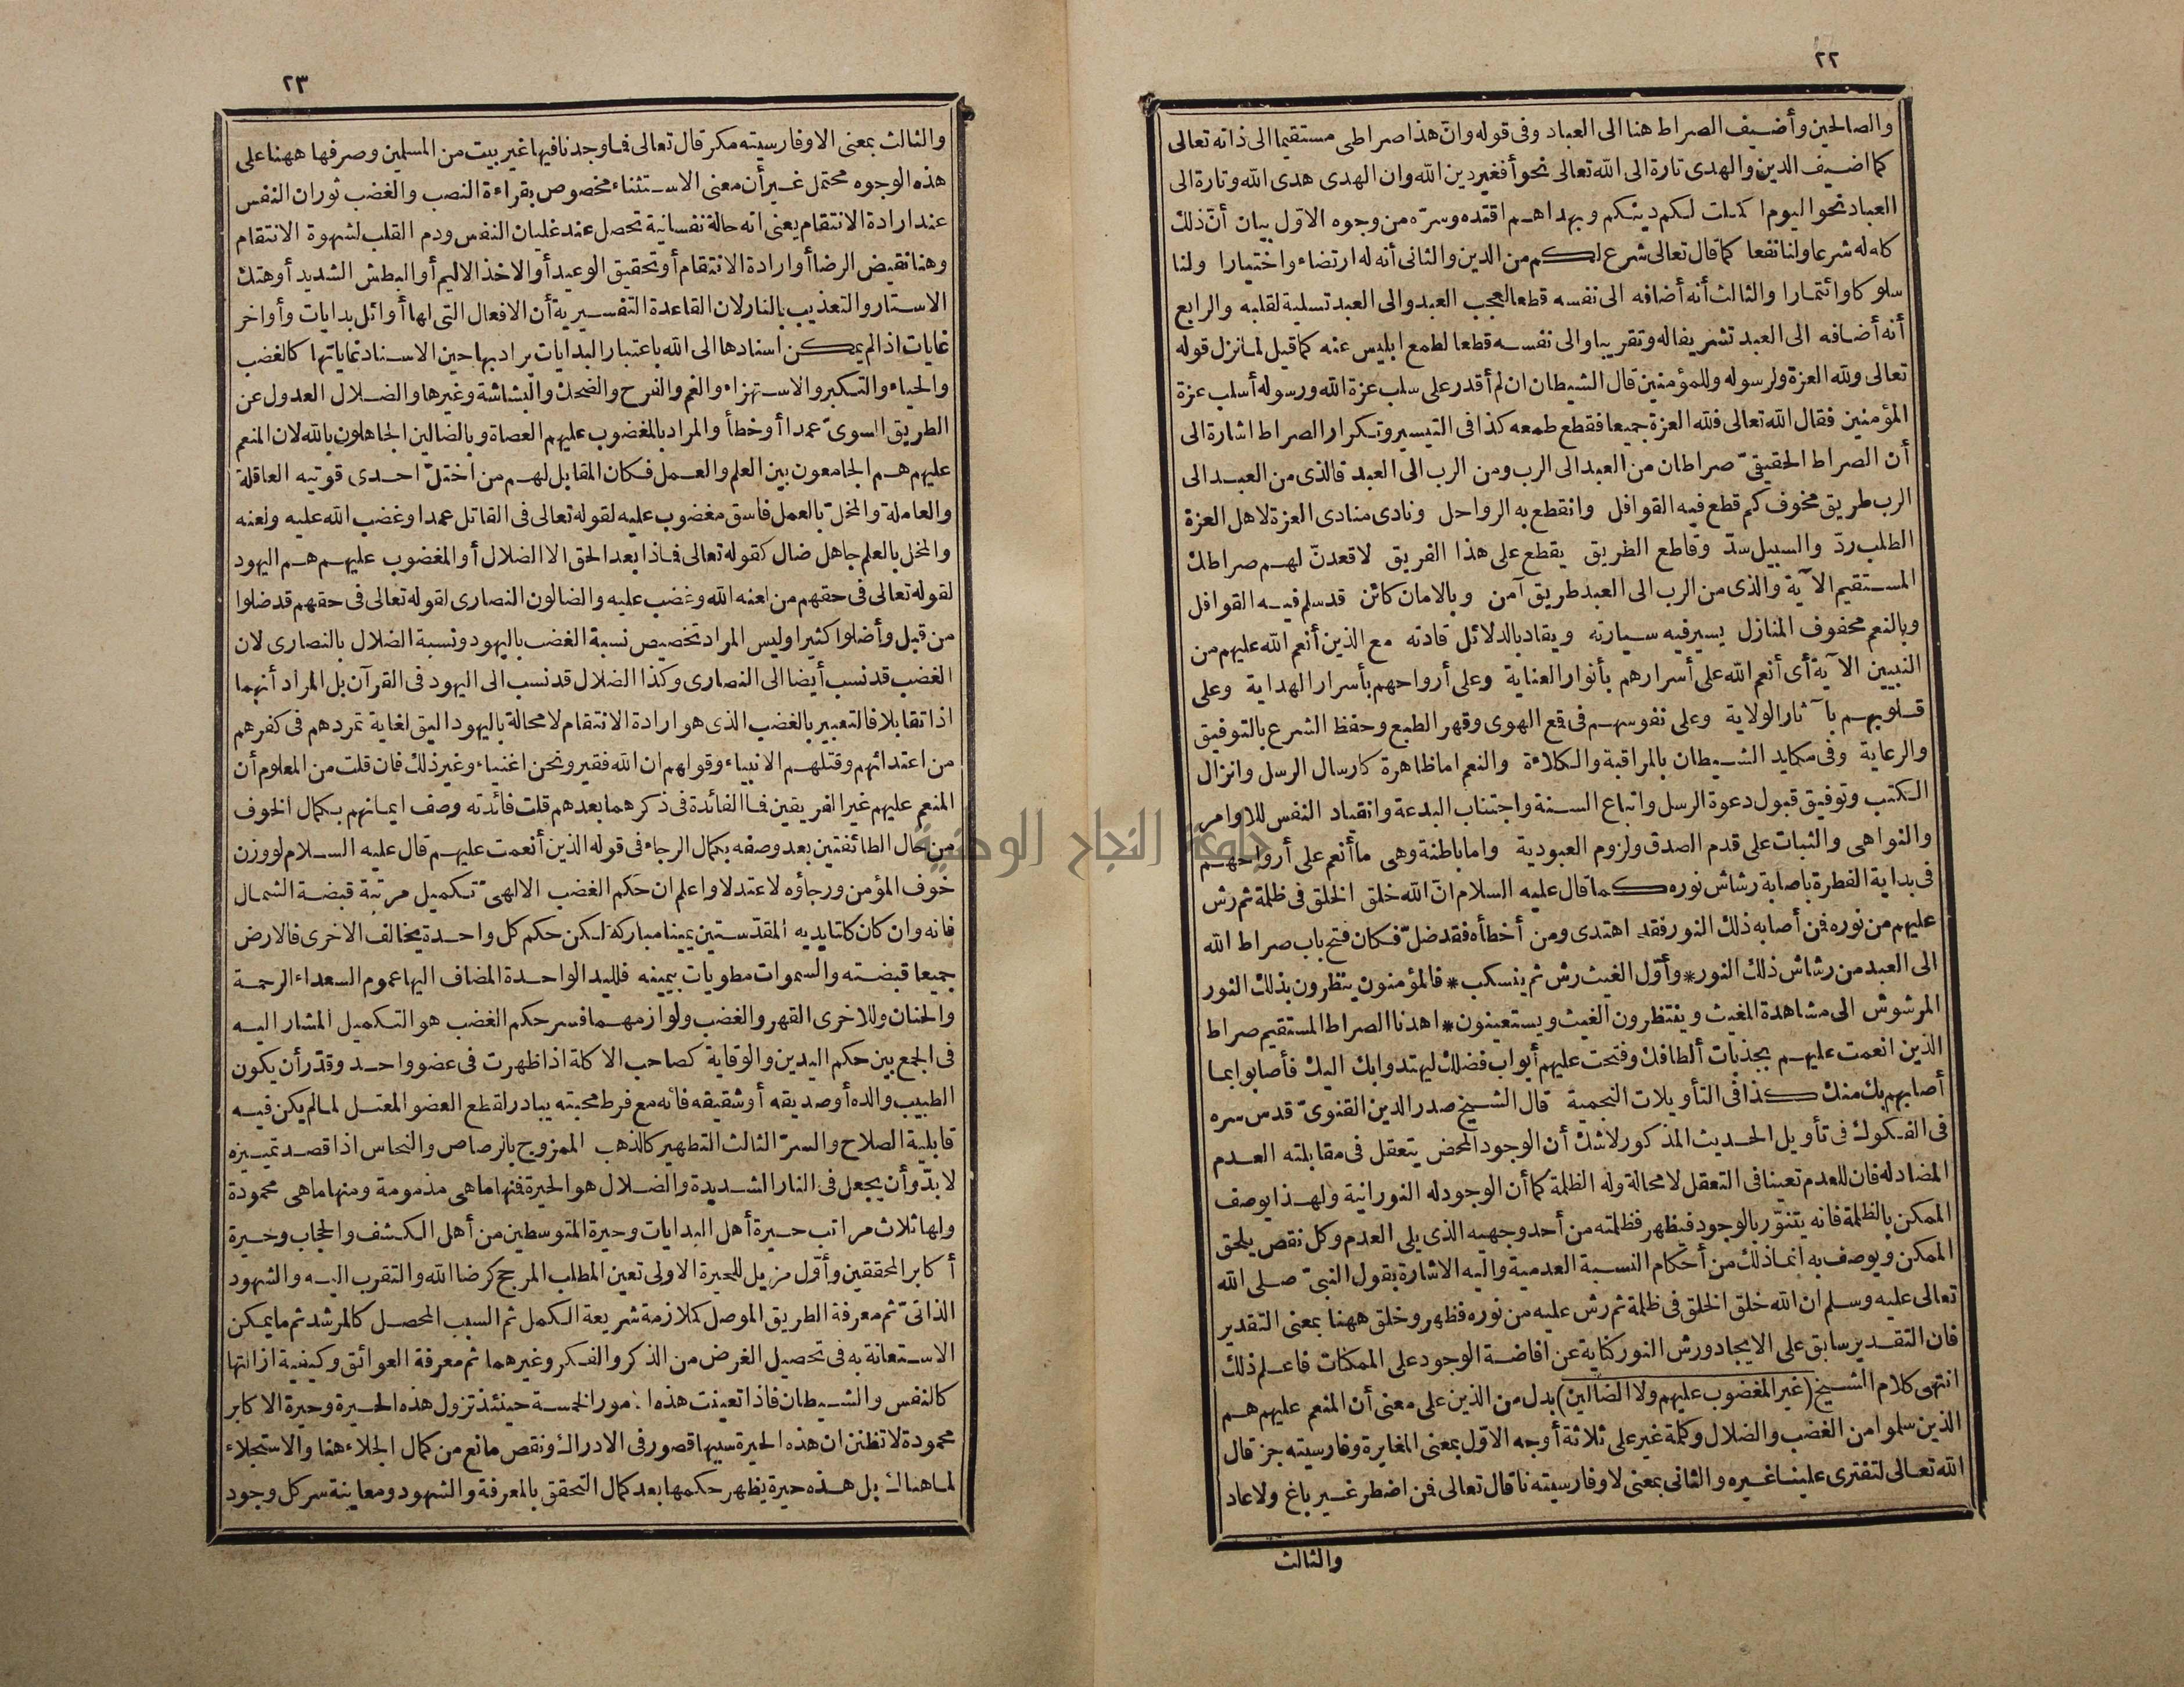 ٢٢
والصالحين وأضيف الصراط هنا الى العباد وفى قوله وانّ هذا صراطى مستقيما الى ذاته تعالى
كما اضيف الدين والهدى تارة الى الله تعالى نحو أفغير دين الله وان الهدى هدى الله وتارة الى
العباد نحو اليوم اكملت لكم دينكم وبهداهم اقتده وسرّه من وجوه الاوّل بيان أنّ ذلك
كله له شرعا ولنا نفعا كما قال تعالى شرع لكم من الدين والثانى أنه له ارتضاء واختيارا ولنا
سلوكا وائتمارا والثالث أنه أضافه الى نفسه قطعا لعجب العبد والى العبد تسلية لقلبه والرابع
أنه أضافه الى العبد تشريفا له وتقريبا والى نفسه قطعا لطمع ابليس عنه كما قيل لما نزل قوله
تعالى ولله العزة ولرسوله وللمؤمنين قال الشيطان ان لم أقدر على سلب عزة الله ورسوله أسلب عزة
المؤمنين فقال الله تعالى فلله العزة جميعا فقطع طمعه كذا فى التيسير وتكرار الصراط اشارة الى
أن الصراط الحقيقىّ صراطان من العبد الى الرب ومن الرب الى العبد فالذى من العبد الى
الرب طريق مخوف كم قطع فيه القوافل وانقطع به الرواحل ونادى منادى العزة لاهل العزة
الطلب ردّ والسبيل سدّ وقاطع الطريق يقطع على هذا الفريق لاقعدنّ لهم صراطك
المستقيم الآية والذى من الرب الى العبد طريق آمن وبالامان كائن قد سلم فيه القوافل
وبالنعم محفوف المنازل يسير فيه سيارته ويقاد بالدلائل قادته مع الذين أنعم الله عليهم من
النبيين الآية أى أنعم الله على أسرارهم بأنوار العناية وعلى أرواحهم بأسرار الهداية وعلى
قلوبهم بآثار الولاية وعلى نفوسهم فى قمع الهوى وقهر الطبع وحفظ الشرع بالتوفيق
والرعاية وفى مكايد الشيطان بالمراقبة والكلاءة والنعم اما ظاهرة كارسال الرسل وانزال
الكتب وتوفيق قبول دعوة الرسل واتباع السنة واجتناب البدعة وانقياد النفس للاوامر
والنواهى والثبات على قدم الصدق ولزوم العبودية واما باطنة وهى ما أنعم على أرواحهم
فى بداية الفطرة باصابة رشاش نوره كما قال عليه السلام انّ الله خلق الخلق فى ظلمة ثم رش
عليهم من نوره فمن أصابه ذلك النور فقد اهتدى ومن أخطأه فقد ضلّ فكان فتح باب صراط الله
الى العبد من رشاش ذلك النور * وأوّل الغيث رش ثم ينسكب * فالمؤمنون ينظرون بذلك النور
المرشوش الى مشاهدة المغيث وينتظرون الغيث ويستعينون * اهدنا الصراط المستقيم صراط
الذين انعمت عليهم بجذبات ألطافك وفتحت عليهم أبواب فضلك ليهتدوا بك اليك فأصابوا بما
أصابهم بك منك كذا فى التأويلات النجمية قال الشيخ صدر الدين القنوىّ قدس سره
فى الفكوك فى تأويل الحديث المذكور لاشك أن الوجود المحض يتعقل فى مقابلته العدم
المضاد له فان للعدم تعينا فى التعقل لا محالة وله الظلمة كما أن الوجود له النورانية ولهذا يوصف
الممكن بالظلمة فانه يتنوّر بالوجود فيظهر فظلمته من أحد وجهيه الذى يلى العدم وكل نقص يلحق
الممكن ويوصف به انما ذلك من أحكام النسبة العدمية واليه الاشارة بقول النبىّ صلى الله
تعالى عليه وسلم ان الله خلق الخلق فى ظلمة ثم رش عليه من نوره فظهر وخلق ههنا بمعنى التقدير
فان التقدير سابق على الايجاد ورش النور كناية عن افاضة الوجود على الممكنات فاعلم ذلك
انتهى كلام الشيخ (غير المغضوب عليهم ولا الضالّين) بدل من الذين على معنى أن المنعم عليهم هم
الذين سلموا من الغضب والضلال وكلمة غير على ثلاثة أوجه الاوّل بمعنى المغايرة وفارسيته جز قال
الله تعالى لتفترى علينا غيره والثانى بمعنى لا وفارسيته نا قال تعالى فمن اضطر غير باغ ولا عاد
والثالث
٢٣
والثالث بمعنى الا وفارسيته مكر قال تعالى فما وجدنا فيها غير بيت من المسلمين وصرفها ههنا على
هذه الوجوه محتمل غير أن معنى الاستثناء مخصوص بقراءة النصب والغضب ثوران النفس
عند ارادة الانتقام يعنى انه حالة نفسانية تحصل عند غليان النفس ودم القلب لشهوة الانتقام
وهنا نقيض الرضا أو ارادة الانتقام أو تحقيق الوعيد أو الاخذ الاليم أو البطش الشديد أو هتك
الاستار والتعذيب بالنار لان القاعدة التفسيرية أن الافعال التى لها أوائل بدايات وأواخر
غايات اذا لم يمكن اسنادها الى الله باعتبار البدايات يراد بها حين الاسناد غاياتها كالغضب
والحياء والتكبر والاستهزاء والغم والفرح والضحك والبشاشة وغيرها والضلال العدول عن
الطريق السوىّ عمدا أو خطأ والمراد بالمغضوب عليهم العصاة وبالضالين الجاهلون بالله لان المنعم
عليهم هم الجامعون بين العلم والعمل فكان المقابل لهم من اختلّ احدى قوتيه العاقلة
والعاملة والمخلّ بالعمل فاسق مغضوب عليه لقوله تعالى فى القاتل عمدا وغضب الله عليه ولعنه
والمخل بالعلم جاهل ضال كقوله تعالى فماذا بعد الحق الا الضلال أو المغضوب عليهم هم اليهود
لقوله تعالى فى حقهم من لعنه الله وغضب عليه والضالون النصارى لقوله تعالى فى حقهم قد ضلوا
من قبل وأضلوا كثيرا وليس المراد تخصيص نسبة الغضب باليهود ونسبة الضلال بالنصارى لان
الغضب قد نسب أيضا الى النصارى وكذا الضلال قد نسب الى اليهود فى القرآن بل المراد أنهما
اذا تقابلا فالتعبير بالغضب الذى هو ارادة الانتقام لا محالة باليهود اليق لغاية تمردهم فى كفرهم
من اعتدائهم وقتلهم الانبياء وقولهم ان الله فقير ونحن اغنياء وغير ذلك فان قلت من المعلوم أن
المنعم عليهم غير الفريقين فما الفائدة فى ذكرهما بعدهم قلت فائدته وصف ايمانهم بكمال الخوف
من حال الطائفتين بعد وصفه بكمال الرجاء فى قوله الذين أنعمت عليهم قال عليه السلام لو وزن
خوف المؤمن ورجاؤه لاعتدلا واعلم ان حكم الغضب الالهىّ تكميل مرتبة قبضة الشمال
فانه وان كان كلتا يديه المقدّستين يمينا مباركة لكن حكم كل واحدة يخالف الاخرى فالارض
جميعا قبضته والسموات مطويات بيمينه فلليد الواحدة المضاف اليها عموم السعداء الرحمة
والحنان وللاخرى القهر والغضب ولوازمهما فسر حكم الغضب هو التكميل المشار اليه
فى الجمع بين حكم اليدين والوقاية كصاحب الاكلة اذا ظهرت فى عضو واحد وقدّر أن يكون
الطبيب والده أو صديقه أو شقيقه فانه مع فرط محبته يبادر لقطع العضو المعتل لما لم يكن فيه
قابلية الصلاح والسرّ الثالث التطهير كالذهب الممزوج بالرصاص والنحاس اذا قصد تمييزه
لابدّ وأن يجعل فى النار الشديدة والضلال هو الحيرة فمنها ما هى مذمومة ومنها ما هى محمودة
ولها ثلاث مراتب حيرة أهل البدايات وحيرة المتوسطين من أهل الكشف والحجاب وحيرة
أكابر المحققين وأوّل مزيل للحيرة الاولى تعين المطلب المرجح كرضا الله والتقرب اليه والشهود
الذاتىّ ثم معرفة الطريق الموصل كملازمة شريعة الكمل ثم السبب المحصل كالمرشد ثم ما يمكن
الاستعانة به فى تحصيل الغرض من الذكر والفكر وغيرهما ثم معرفة العوائق وكيفية ازالتها
كالنفس والشيطان فاذا تعينت هذه الامور الخمسة حينئذ تزول هذه الحيرة وحيرة الاكابر
محمودة لا تظنن ان هذه الحيرة سببها قصور فى الادراك ونقص مانع من كمال الجلاء هنا والاستجلاء
لما هناك بل هذه حيرة يظهر حكمها بعد كمال التحقق بالمعرفة والشهود ومعاينة سر كل وجود
جامعة النجاح الوطنية